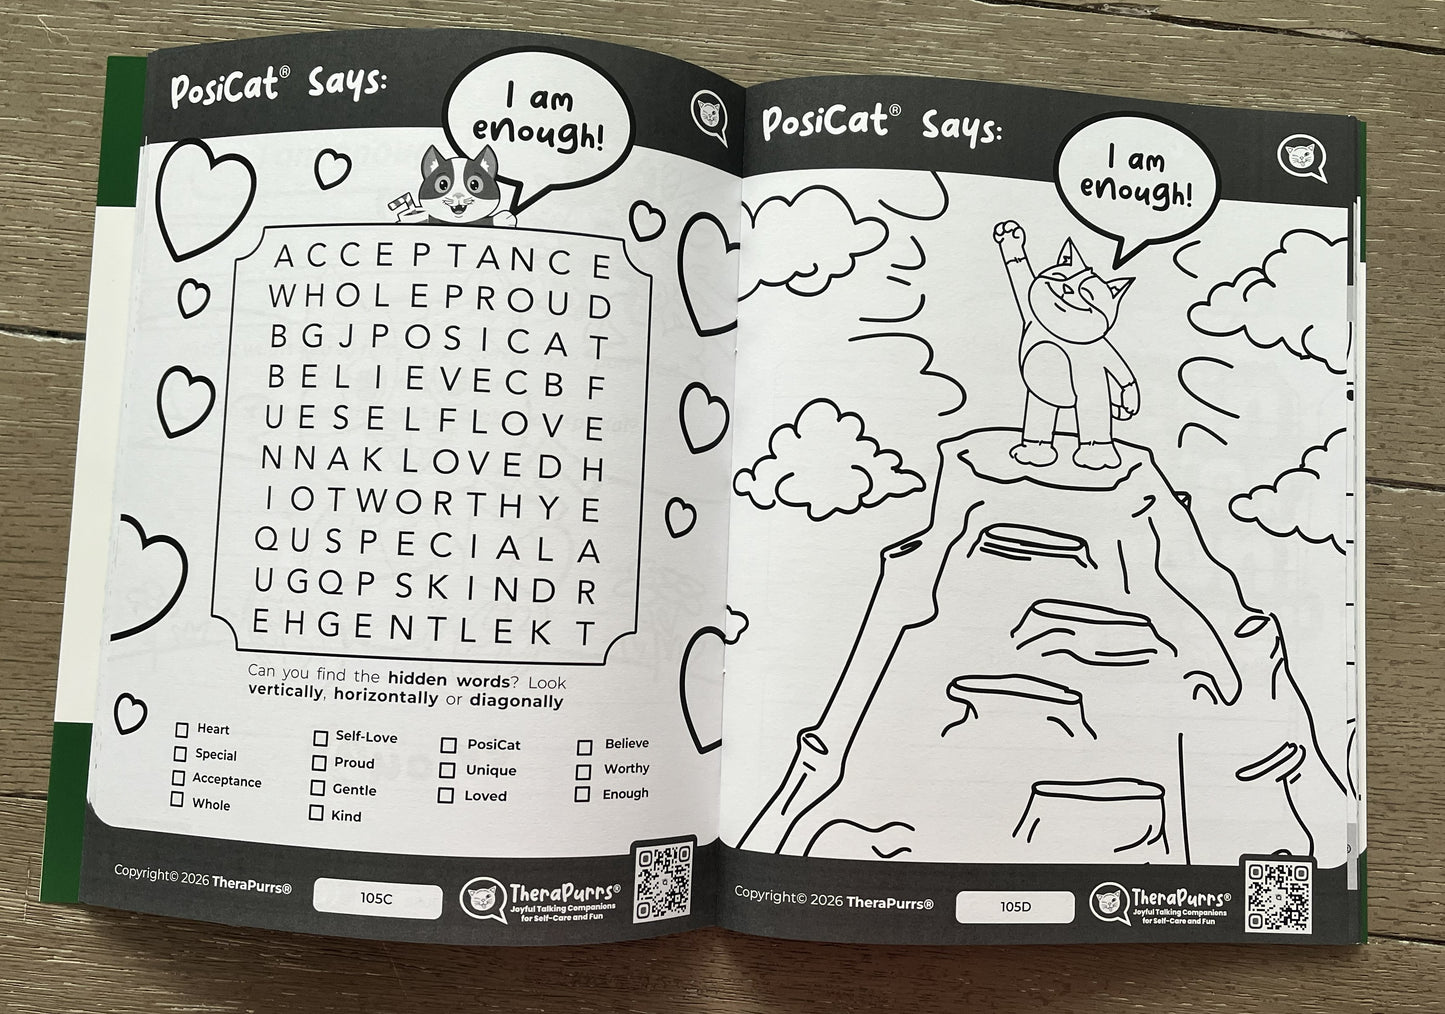 PosiCat® Says:
I am
enough!
A C C E P T A N C E
W H O L E P R O U D
B G J P O S I C A T
B E L I E V E C B F
U E S E L F L O V E
N N A K L O V E D H
I O T W O R T H Y E
Q U S P E C I A L A
U G Q P S K I N D R
E H G E N T L E K T
Can you find the hidden words? Look
vertically, horizontally or diagonally
Heart
Special
Acceptance
Whole
Self-Love
Proud
Gentle
Kind
PosiCat
Unique
Loved
Believe
Worthy
Enough
Copyright© 2026 TheraPurrs®
105C
TheraPurrs®
Joyful Talking Companions
for Self-Care and Fun
PosiCat® Says:
I am
enough!
Copyright© 2026 TheraPurrs®
105D
TheraPurrs®
Joyful Talking Companions
for Self-Care and Fun